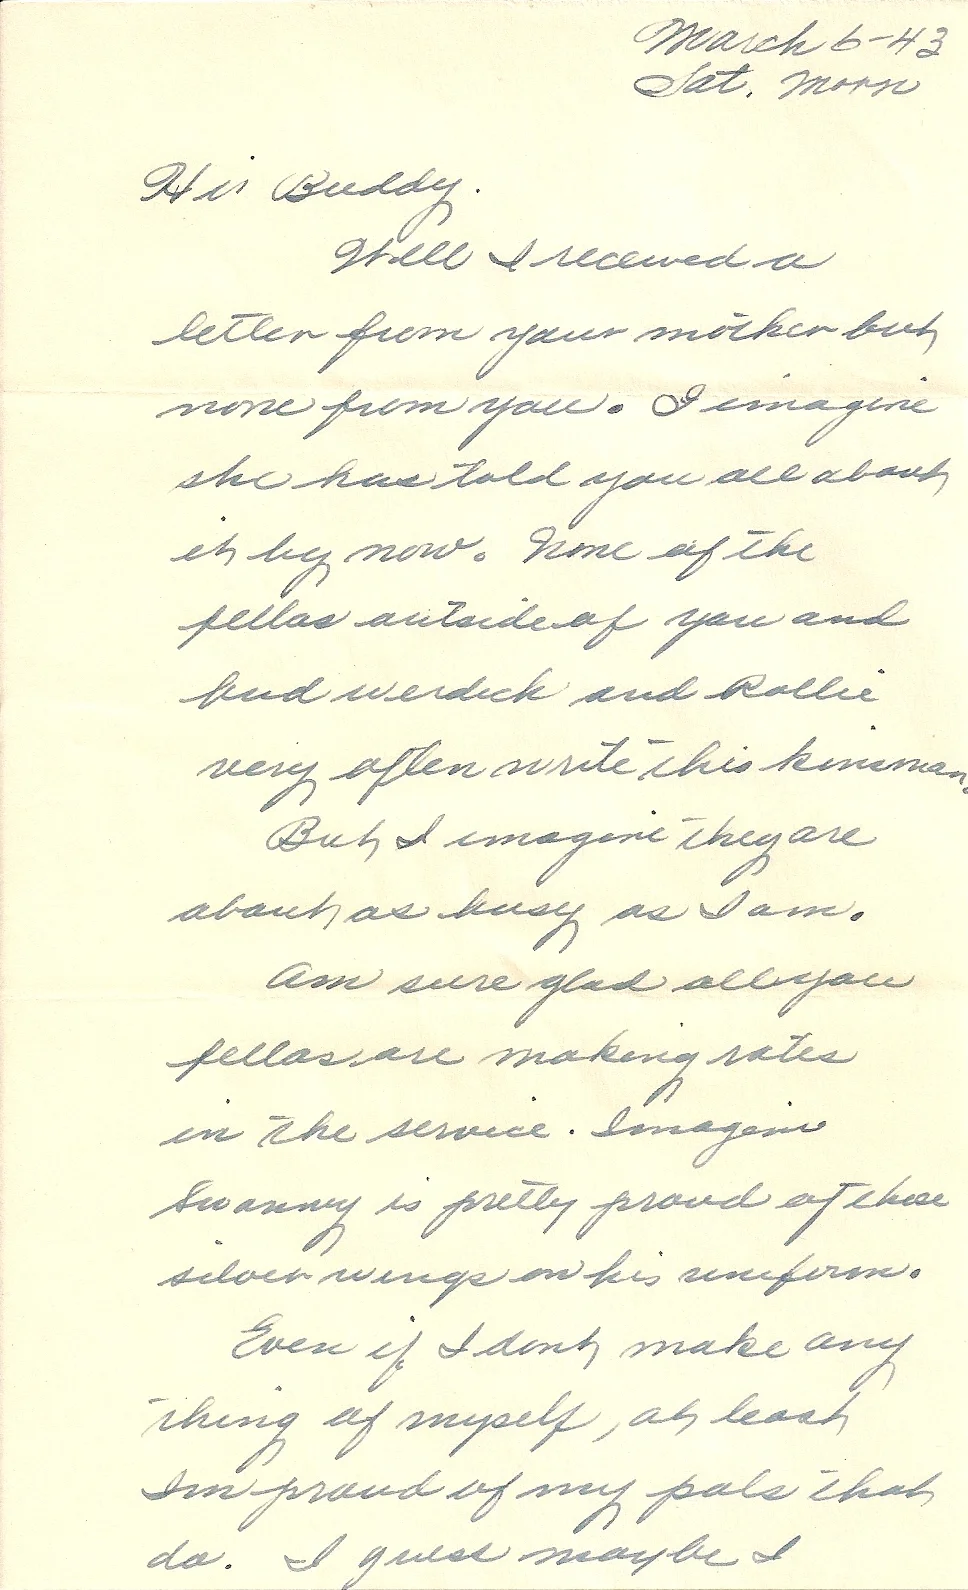 March 6-43
Sat. Morn
Hi Buddy.
Well I received a
letter from your mother but
none from you. I imagine
she has told you all about
it by now. None of the
fellas outside of you and
bud werdick and Rollie
very often write this kinsman.
But I imagine they are
about as busy as I am.
Am sure glad all you
fellas are making rates
in the service. Imagine
Swanny is pretty proud of those
silver wings on his uniform.
Even if I dont make any
thing of myself, at least
Im proud of my pals that
do. I guess maybe I